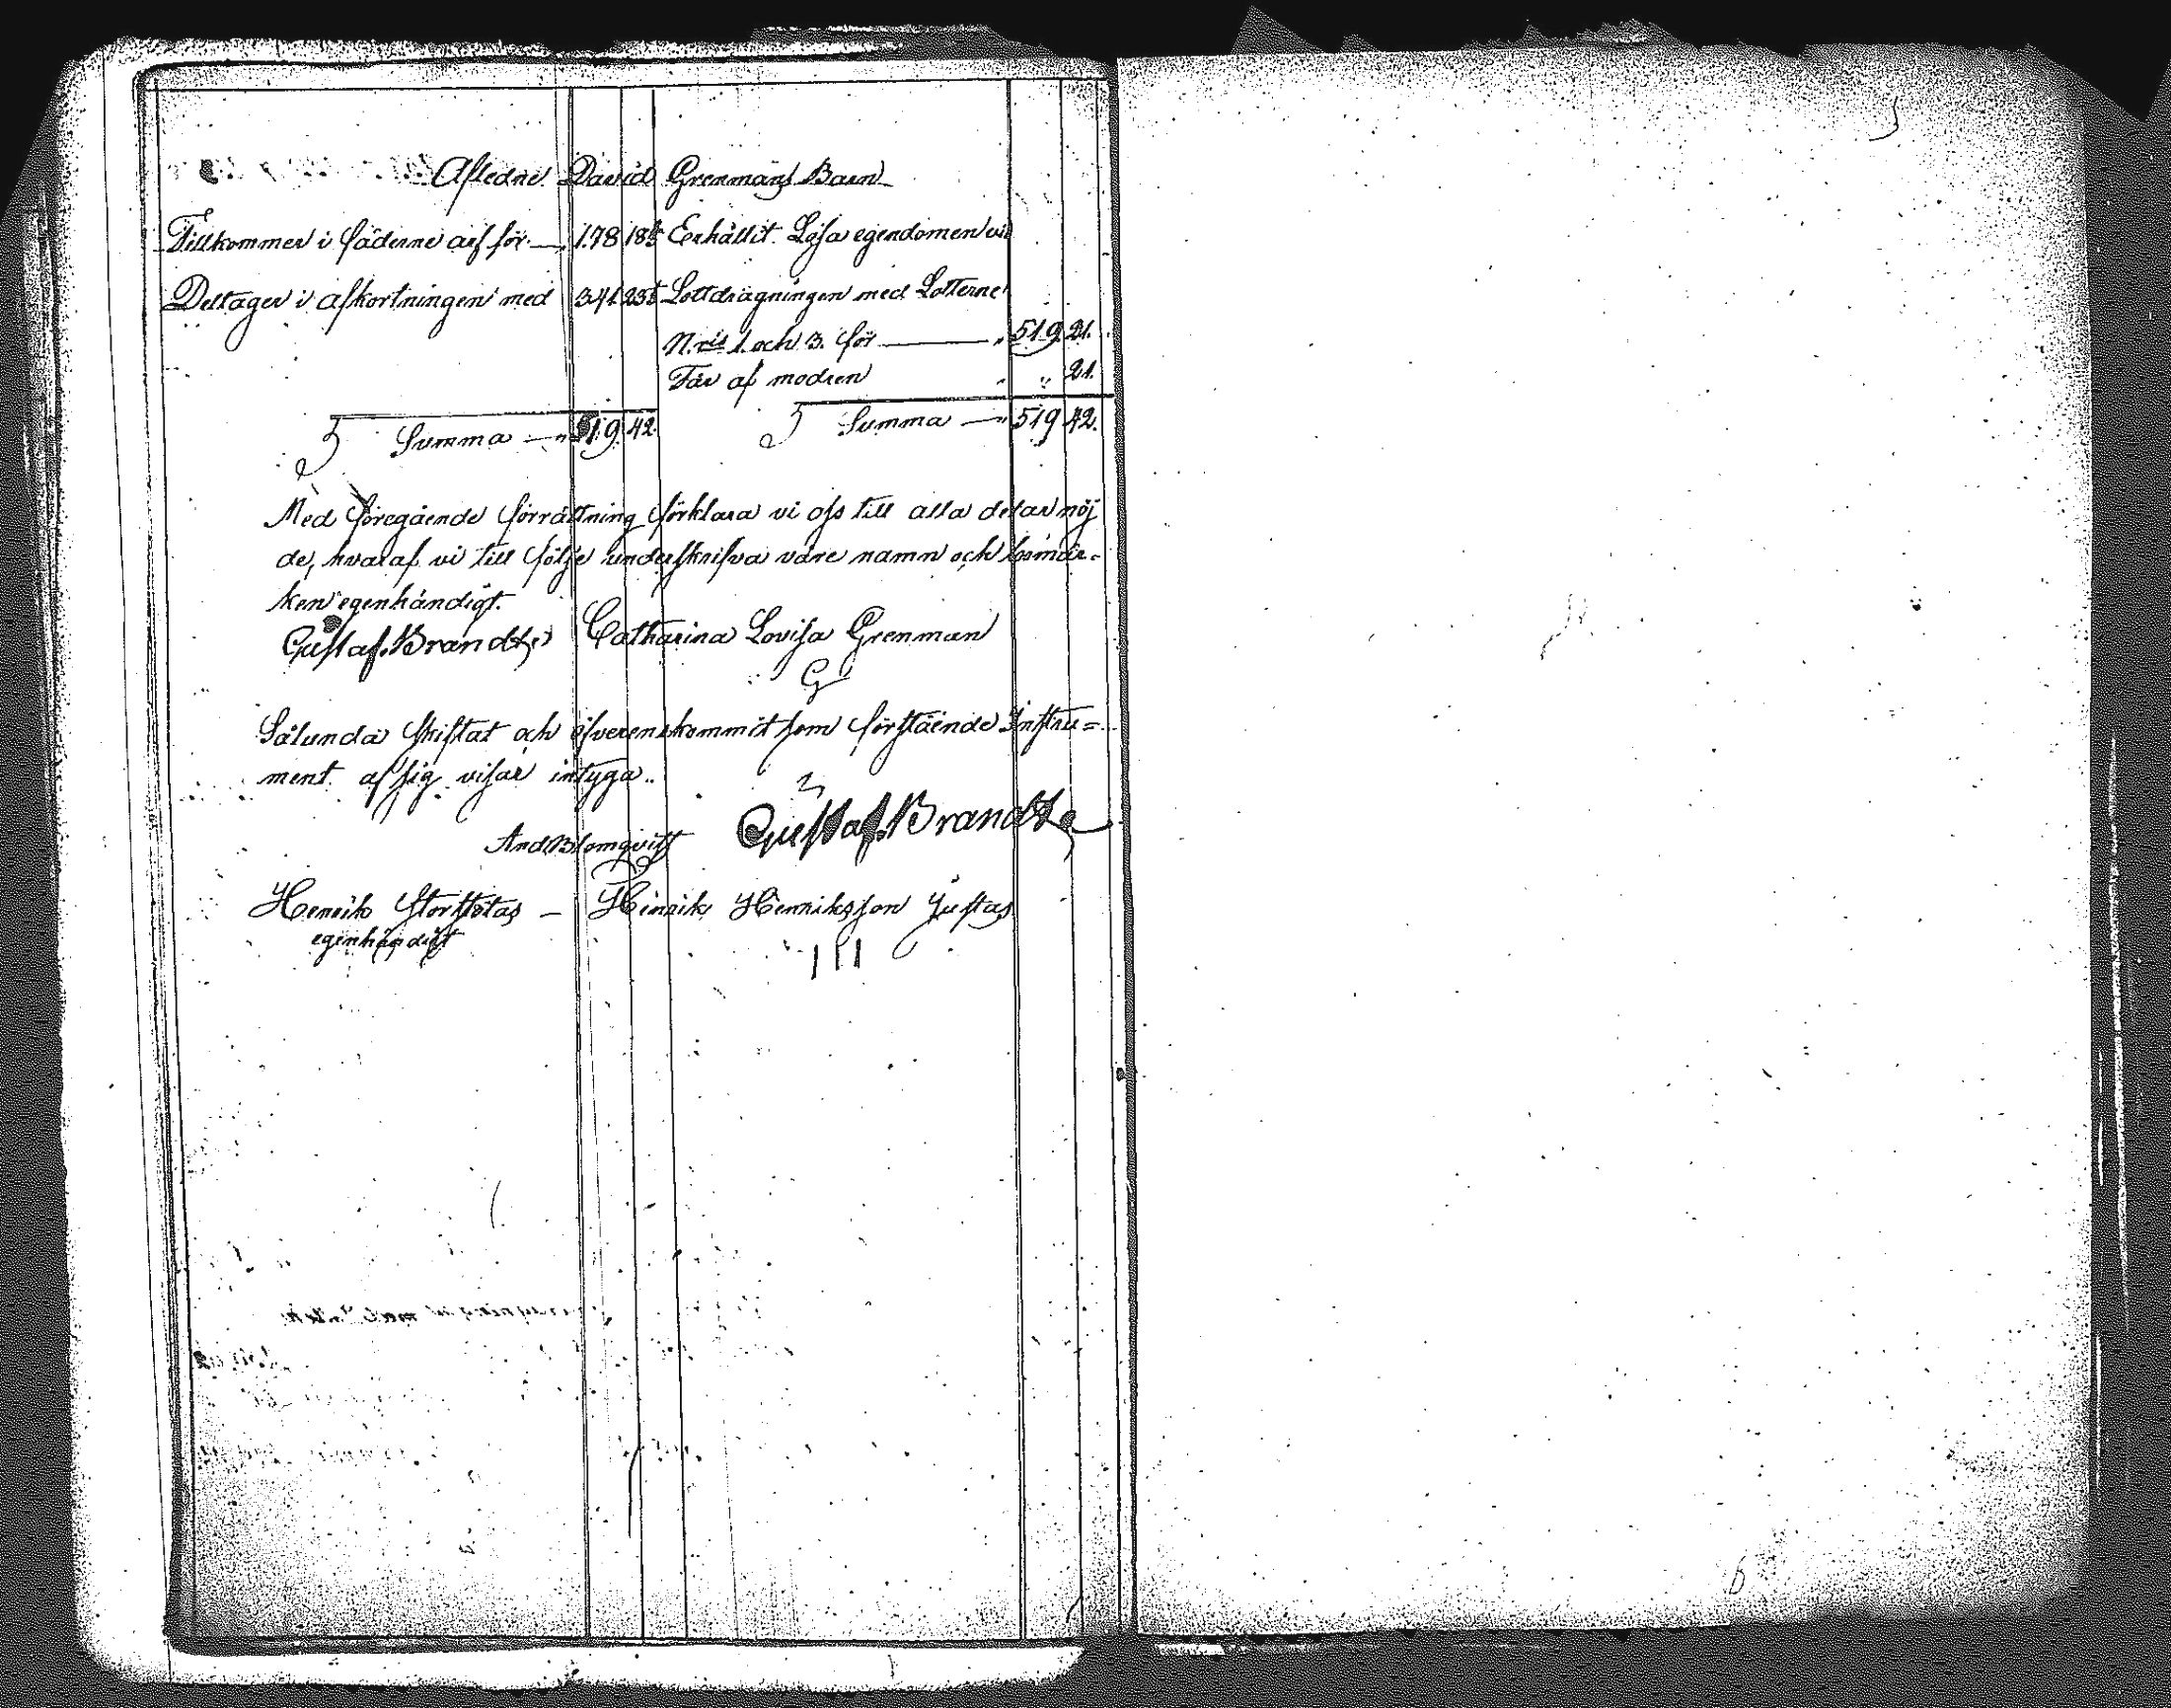 Afledne David Grenmans Barn
Tillkommer i fäderne arf för — 178 18½
Deltager i afkortningen med 341 23½
Summa — " 519 42
Erhållit Lösa egendomen vid
Lottdragningen med Lotterne
N.ris 1. och 3. för — " 519. 21.
Får af modren " " 21.
Summa — " 519 42.
Med föregående förrättning förklara vi oss till alla delar nöj
de, hvaraf vi till följe underskrifva våre namn och bomär=
ken egenhändigt.
Gustaf Brandt Catharina Lovisa Grenman
G
Sålunda skiftat och öfverenskommit som förstående Instru=
ment af sig visar intyga..
And Blomqvist Gustaf Brandt
Henrik Storstotas — Hinrik Henriksson Justas
egenhändigt